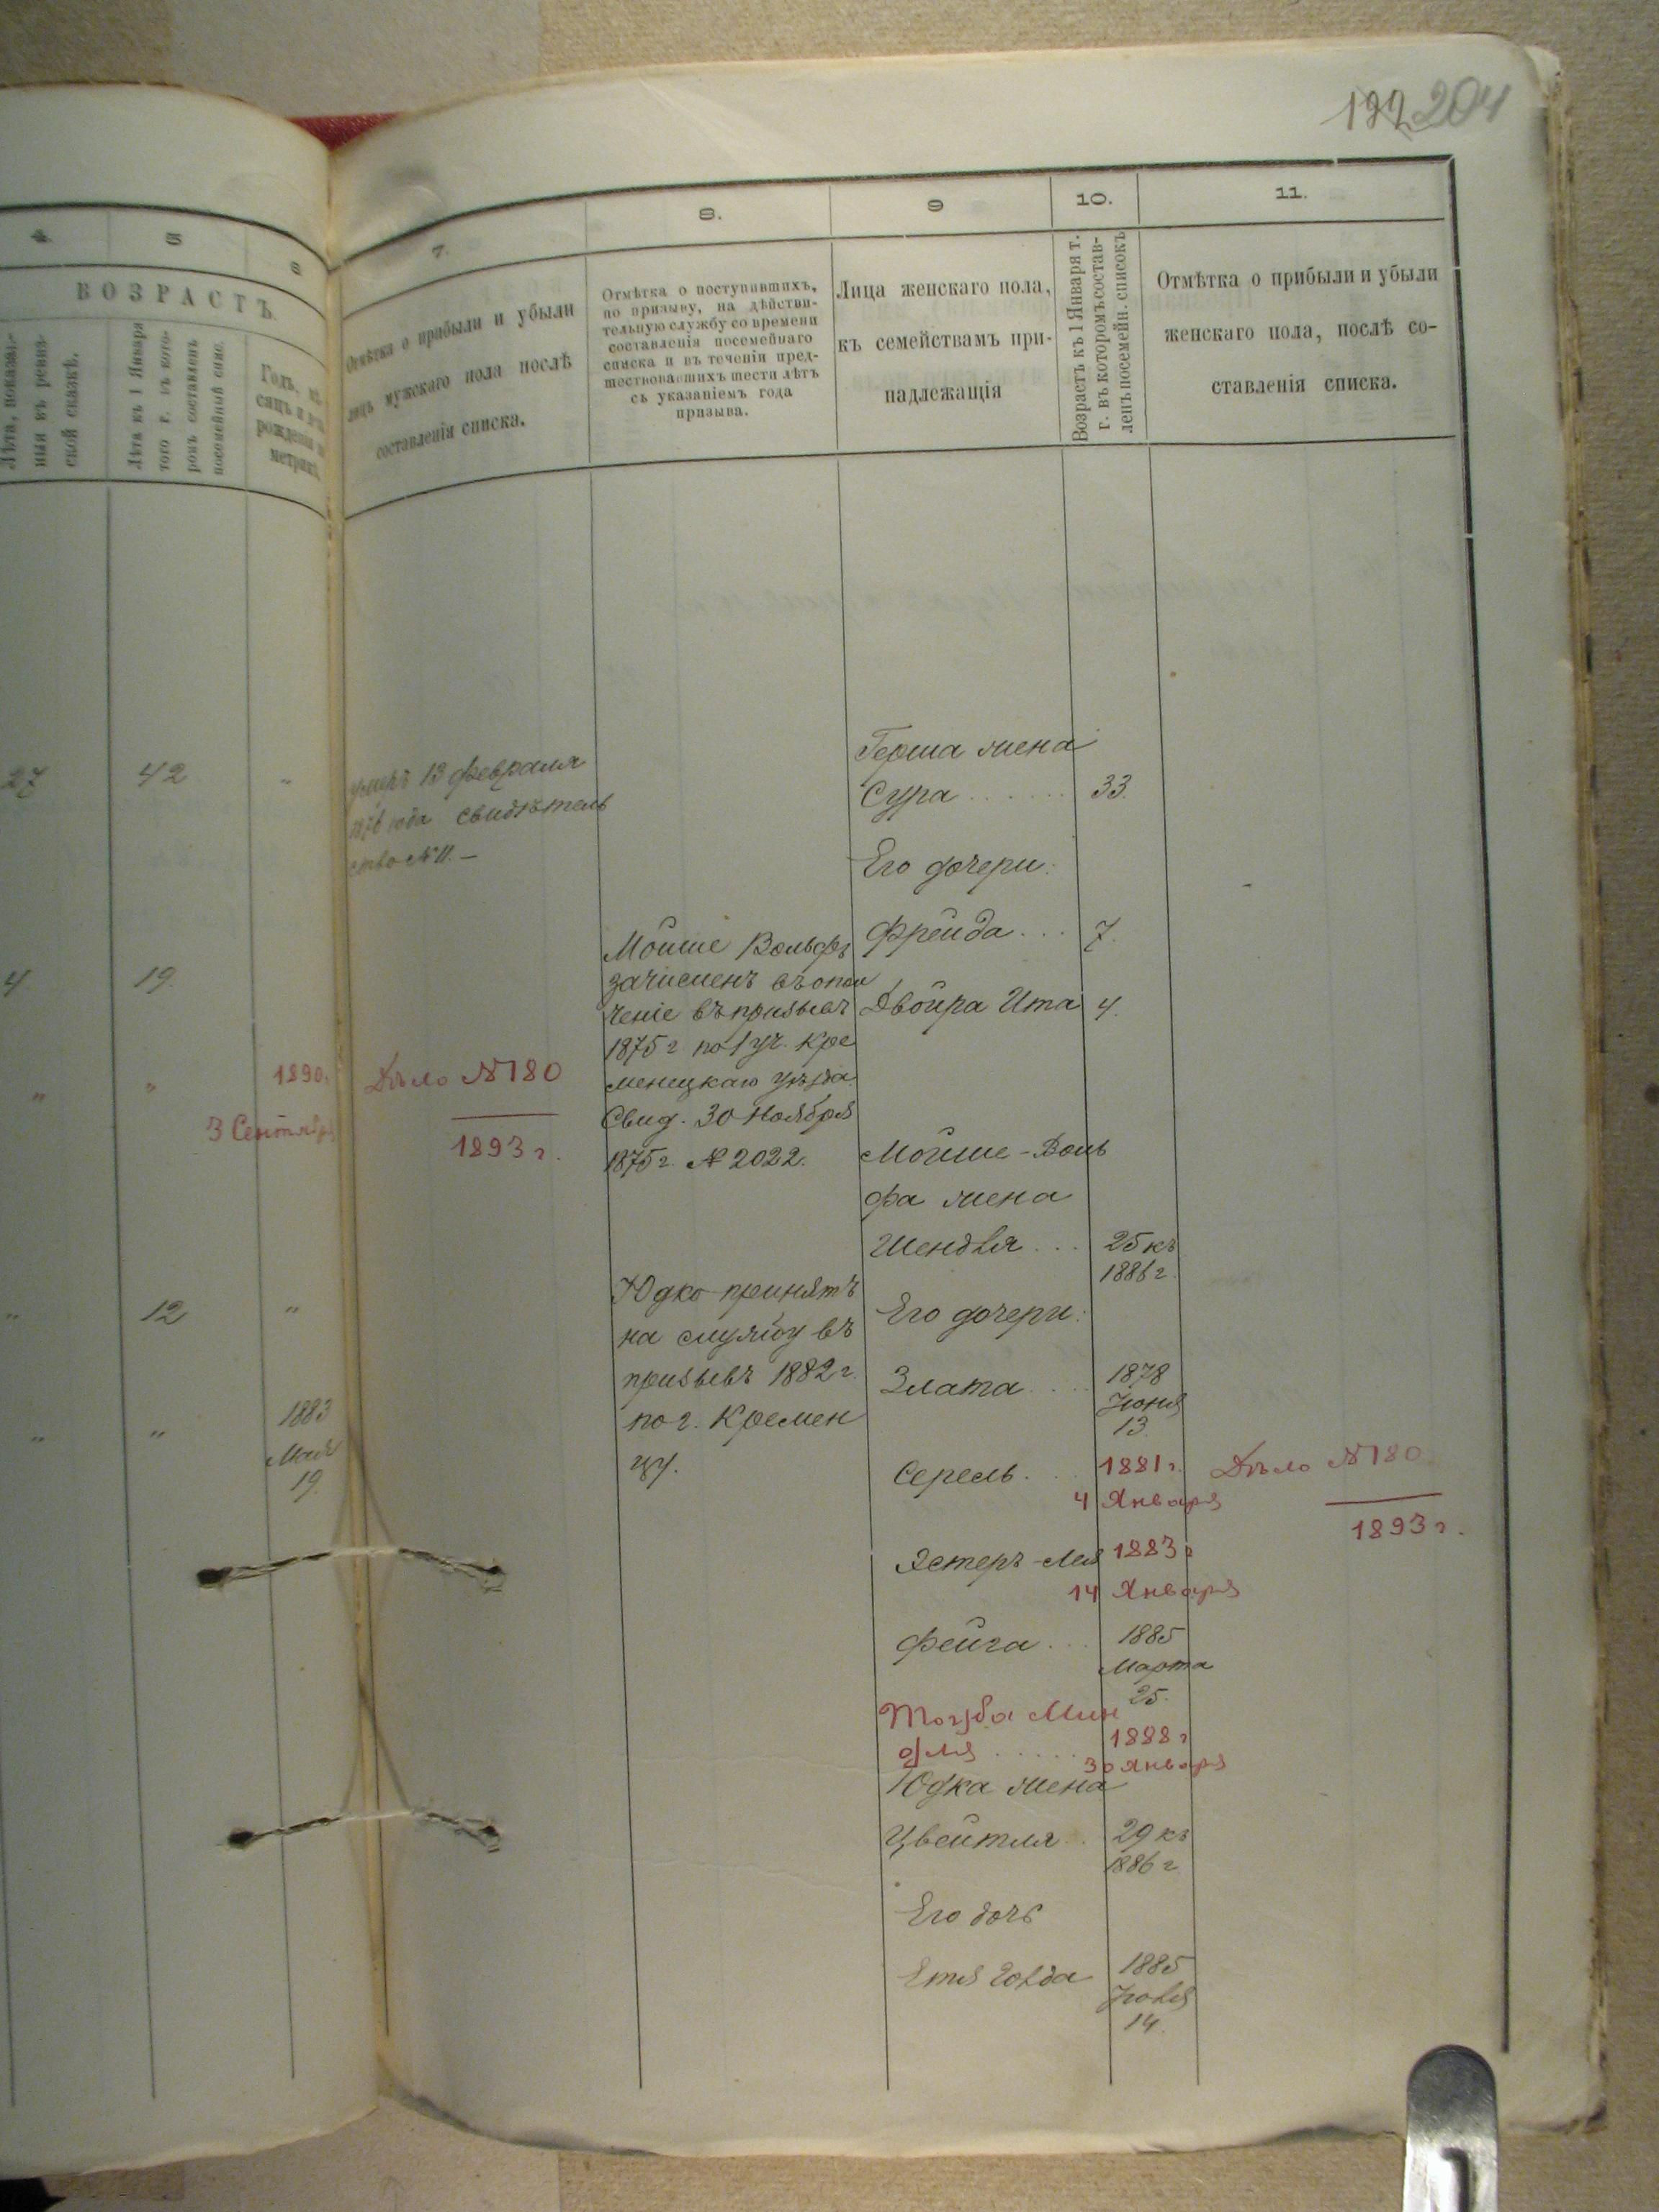 192 204
4.
5
6
7.
8.
9
10.
11.
ВОЗРАСТЪ.
Лѣта, показан-
ныя въ ревиз-
ской сказкѣ.
Лѣта къ 1 Января
того г. въ кото-
ромъ составленъ
посемейный спис.
Годъ, мѣ-
сяцъ и день
рожденія по
метрикѣ.
Отмѣтка о прибыли и убыли
лицъ мужскаго пола послѣ
составленія списка.
Отмѣтка о поступившихъ,
по призыву, на дѣйстви-
тельную службу со времени
составленія посемейнаго
списка и въ теченіи пред-
шествовавшихъ шести лѣтъ
съ указаніемъ года
призыва.
Лица женскаго пола,
къ семействамъ при-
надлежащія
Возрастъ къ 1 Января т.
г. въ которомъ состав-
ленъ посемейн. списокъ
Отмѣтка о прибыли и убыли
женскаго пола, послѣ со-
ставленія списка.
27 42 "
умеръ 13 февраля
1876 года свидѣтель
ство № 11. —
Герша жена
Сура . . . . . . 33.
Его дочери:
Фрейда . . . 7.
Двойра Ита 4.
4 19.
Мойше Вольфъ
зачисленъ въ опол
ченіе въ призывъ
1875 г. по 1 уч. Кре
менецкаго уѣзда
Свид. 30 Ноября
1875 г. № 2022.
" " 1890 г.
3 Сентября
Дѣло № 180
1893 г.
Мойше-Воль
фа жена
Шендля . . . 25 къ
1886 г.
" 12 "
Юдко принятъ
на службу въ
призывъ 1882 г.
по г. Кремен
цу.
Его дочери:
Злата . . . . 1878
Іюня
13.
" " 1883
Мая
19.
Серель . . . 1881 г.
4 Января
Дѣло № 180
1893 г.
Эстеръ-Лея 1883 г
14 Января
Фейга . . . 1885
Марта
25.
Тојба Мин
для . . . . . 1888 г
30 Января
Юдка жена
Цвейтля . . 29 къ
1886 г
Его дочь
Етя Голда 1885
Іюля
14.